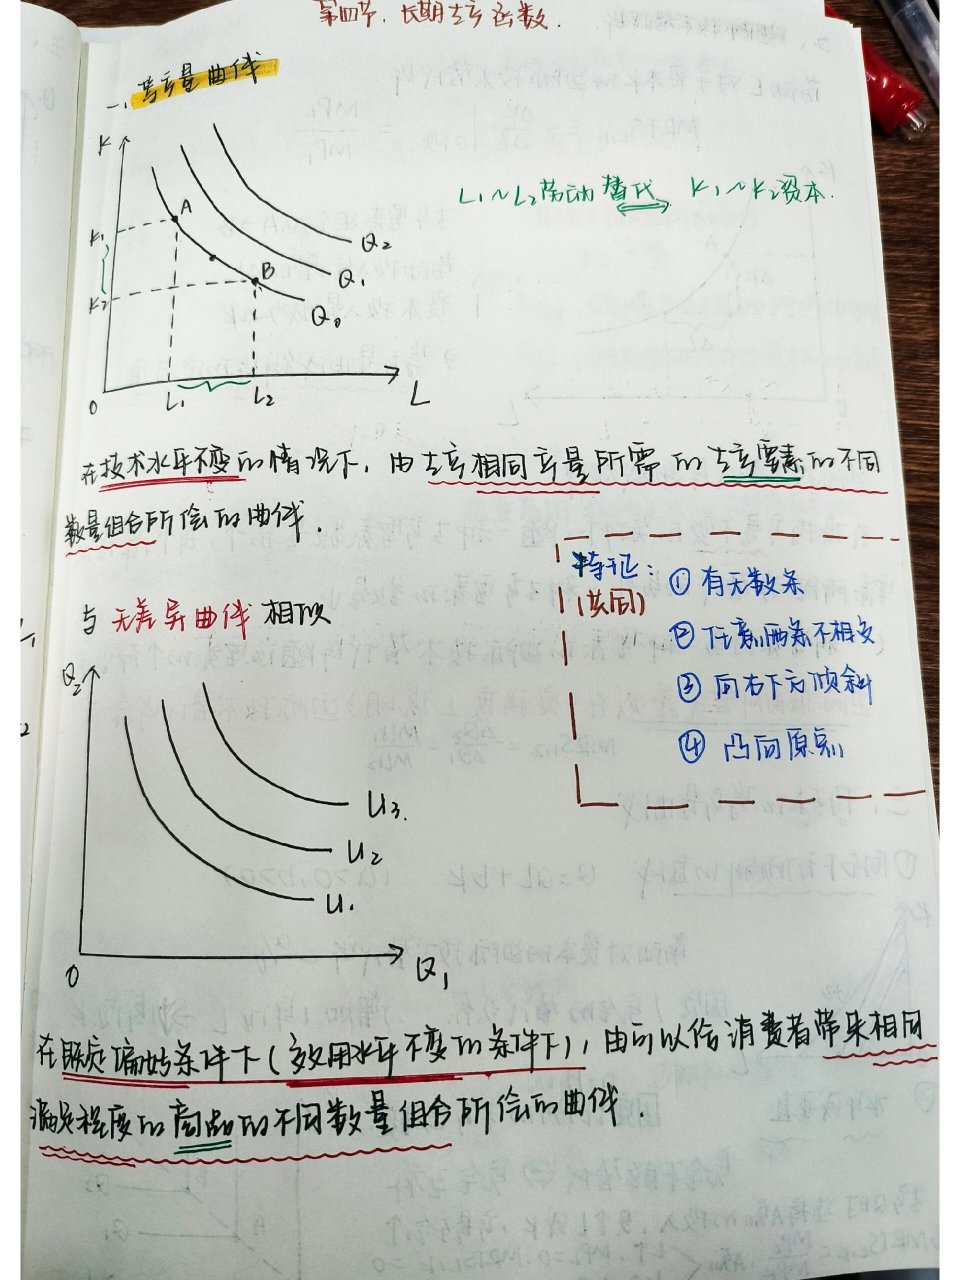 第四节、长期生产函数.
一、等产量曲线
K
L1~L2劳动 替代 K1~K2资本.
A
K1
Q2
B
Q1
K2
Q0
0 L1 L2 L
在技术水平不变的情况下，由生产相同产量所需的生产要素的不同
数量组合所绘的曲线.
特征: ① 有无数条
(共同)
与无差异曲线相似
② 任意两条不相交
③ 向右下方倾斜
④ 凸向原点
Q2
U3.
U2
U1
0 Q1
在既定偏好条件下(效用水平不变的条件下)，由可以给消费者带来相同
满足程度的商品的不同数量组合所绘的曲线.